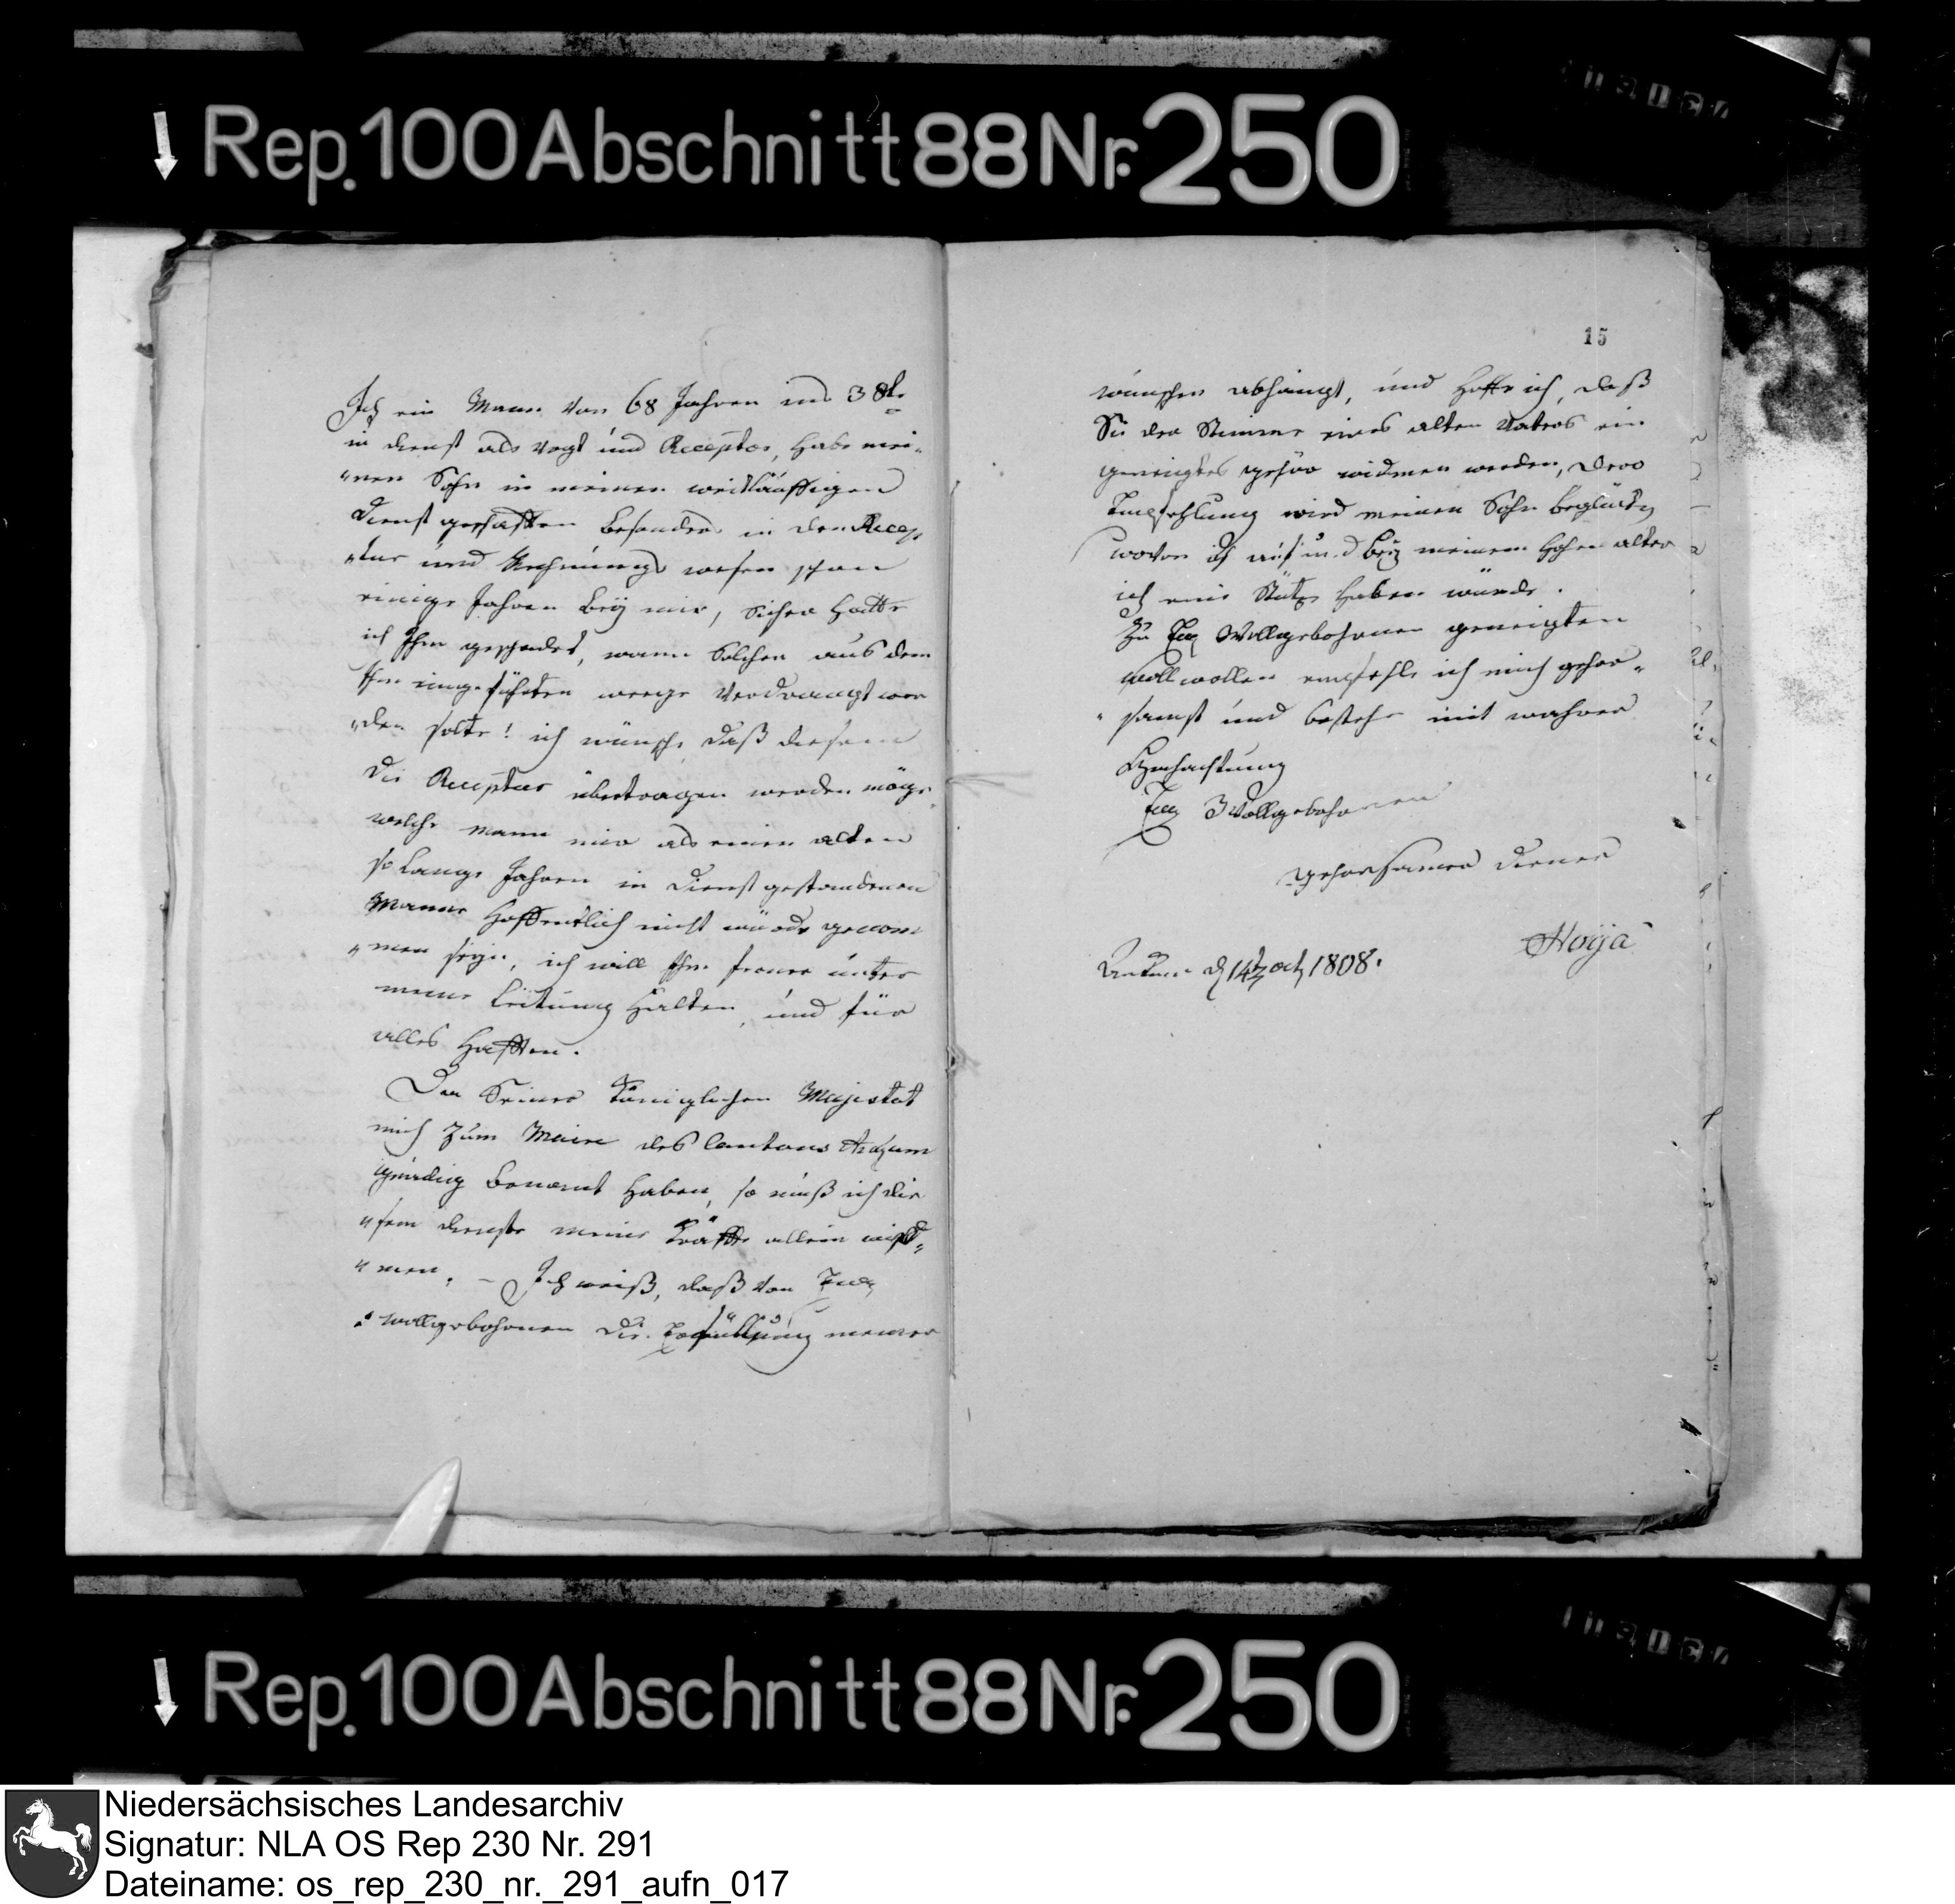 Rep. 100 Abschnitt 88 Nr. 250
Ich ein Mann von 68 Jahren ins 38te
in dienst als Vogt und Receptor, habe mei„
„nen Sohn in meinen weitläuffigen
Dienst geschäfften besonders in der Recep„
„tur und Rechnungs wesen schon
einige Jahren beÿ mir, sicher hätte
ich Ihm geschadet, wann Solcher aus dem
Ihm eingeführten wege Verdrangt wer
„den solte! ich wünsche daß diesem
die Receptur übertragen werden möge
welche mann mir als einen alten
so lange Jahren in Dienst gestandenen
Manne hoffentlich nicht würde genom
„men seÿn, ich will Ihn ferner unter
meine Leitung halten, und für
alles hafften.
Da Seiner Königlichen Majestät
mich zum Maire des Cantons Ankum
gnädig benannt haben, so muß ich die
„sem dienste meine Kräffte allein wid„
„men. – Ich weiß, daß von Euer
wollgebohrnen die Erfüllung meiner
15
wünschen abhängt, und hoffe ich, daß
Sie der Stimme eines alten Vaters ein
geneigtes gehör widmen werden, dero
Empfehlung wird meinen Sohn beglücken
wovon ich auf und beÿ meinem hohen alter
ich eine Stütze haben würde.
Zu Euer Wollgebohrnen geneigten
wollwollen empfehle ich mich gehor„
„samst und bestehe mit wahrer
Hochachtung
Euer Wollgebohrnen
gehorsamer Diener
Hoÿa
Ankum d 14t oct 1808.
Rep. 100 Abschnitt 88 Nr. 250
Niedersächsisches Landesarchiv
Signatur: NLA OS Rep 230 Nr. 291
Dateiname: os_rep_230_nr._291_aufn_017